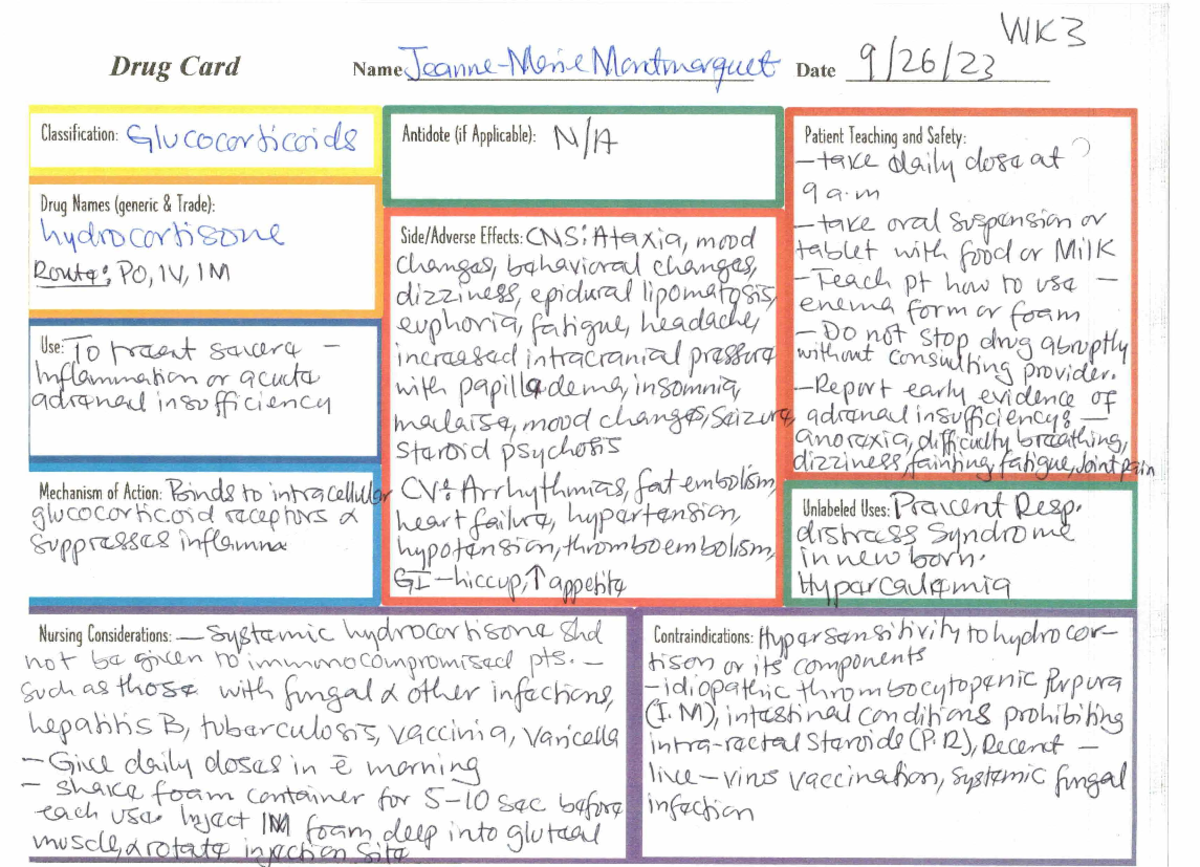 WK3
Drug Card
Name Jeanne-Marie Montmarquet Date 9/26/23
Classification: Glucocorticoids
Drug Names (generic & Trade):
hydrocortisone
Route: PO, IV, IM
Use: To
Inflammation or acute
adrenal insufficiency
Mechanism of Action: Binds to intracellular
glucocorticoid receptors &
suppresses inflamma
Antidote (if Applicable): N/A
Side/Adverse Effects: CNS: Ataxia, mood
changes, behavioral changes,
dizziness, epidural lipomatosis,
euphoria, fatigue, headache,
increased intracranial pressure
with papilledema, insomnia,
malaise, mood changes, Seizure,
Steroid psychosis
CV: Arrhythmias, fat embolism,
heart failure, hypertension,
hypotension, thromboembolism,
GI-hiccup, ↑ appetite
Patient Teaching and Safety:
-take daily dose at
9 a.m
-take oral suspension or
tablet with food or Milk
-Teach pt how to use -
enema form or foam
-Do not stop drug abruptly
without consulting provider.
-Report early evidence of
adrenal insufficiency: -
anorexia, difficulty breathing,
dizziness, fainting, fatigue, Joint pain
Unlabeled Uses: Prevent Resp.
distress Syndrome
in new born.
Hypercalcemia
Nursing Considerations: - Systemic hydrocortisone Shd
not be given to immunocompromised pts. -
such as those with fungal & other infections,
hepatitis B, tuberculosis, vaccinia, Varicella
- Give daily doses in ē morning
- Shake foam container for 5-10 sec before
each use. Inject IM foam deep into gluteal
muscle, & rotate injection Site
Contraindications: Hypersensitivity to hydrocor-
tison or its components
-idiopathic thrombocytopenic Purpura
(I.M), intestinal conditions prohibiting
intra-rectal Steroids (P.R), Recent -
live-virus vaccination, Systemic fungal
infection